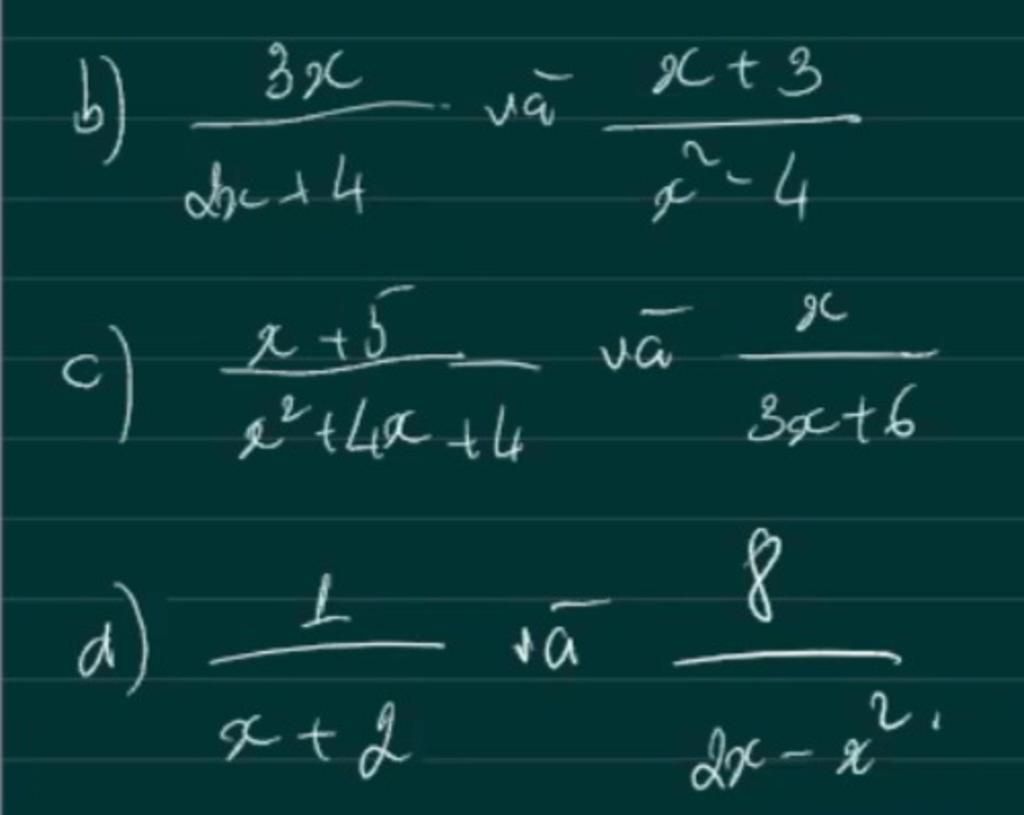 b) 3x/(2x+4) và (x+3)/(x²-4)
c) (x+5)/(x²+4x+4) và x/(3x+6)
d) 1/(x+2) và 8/(2x-x²).